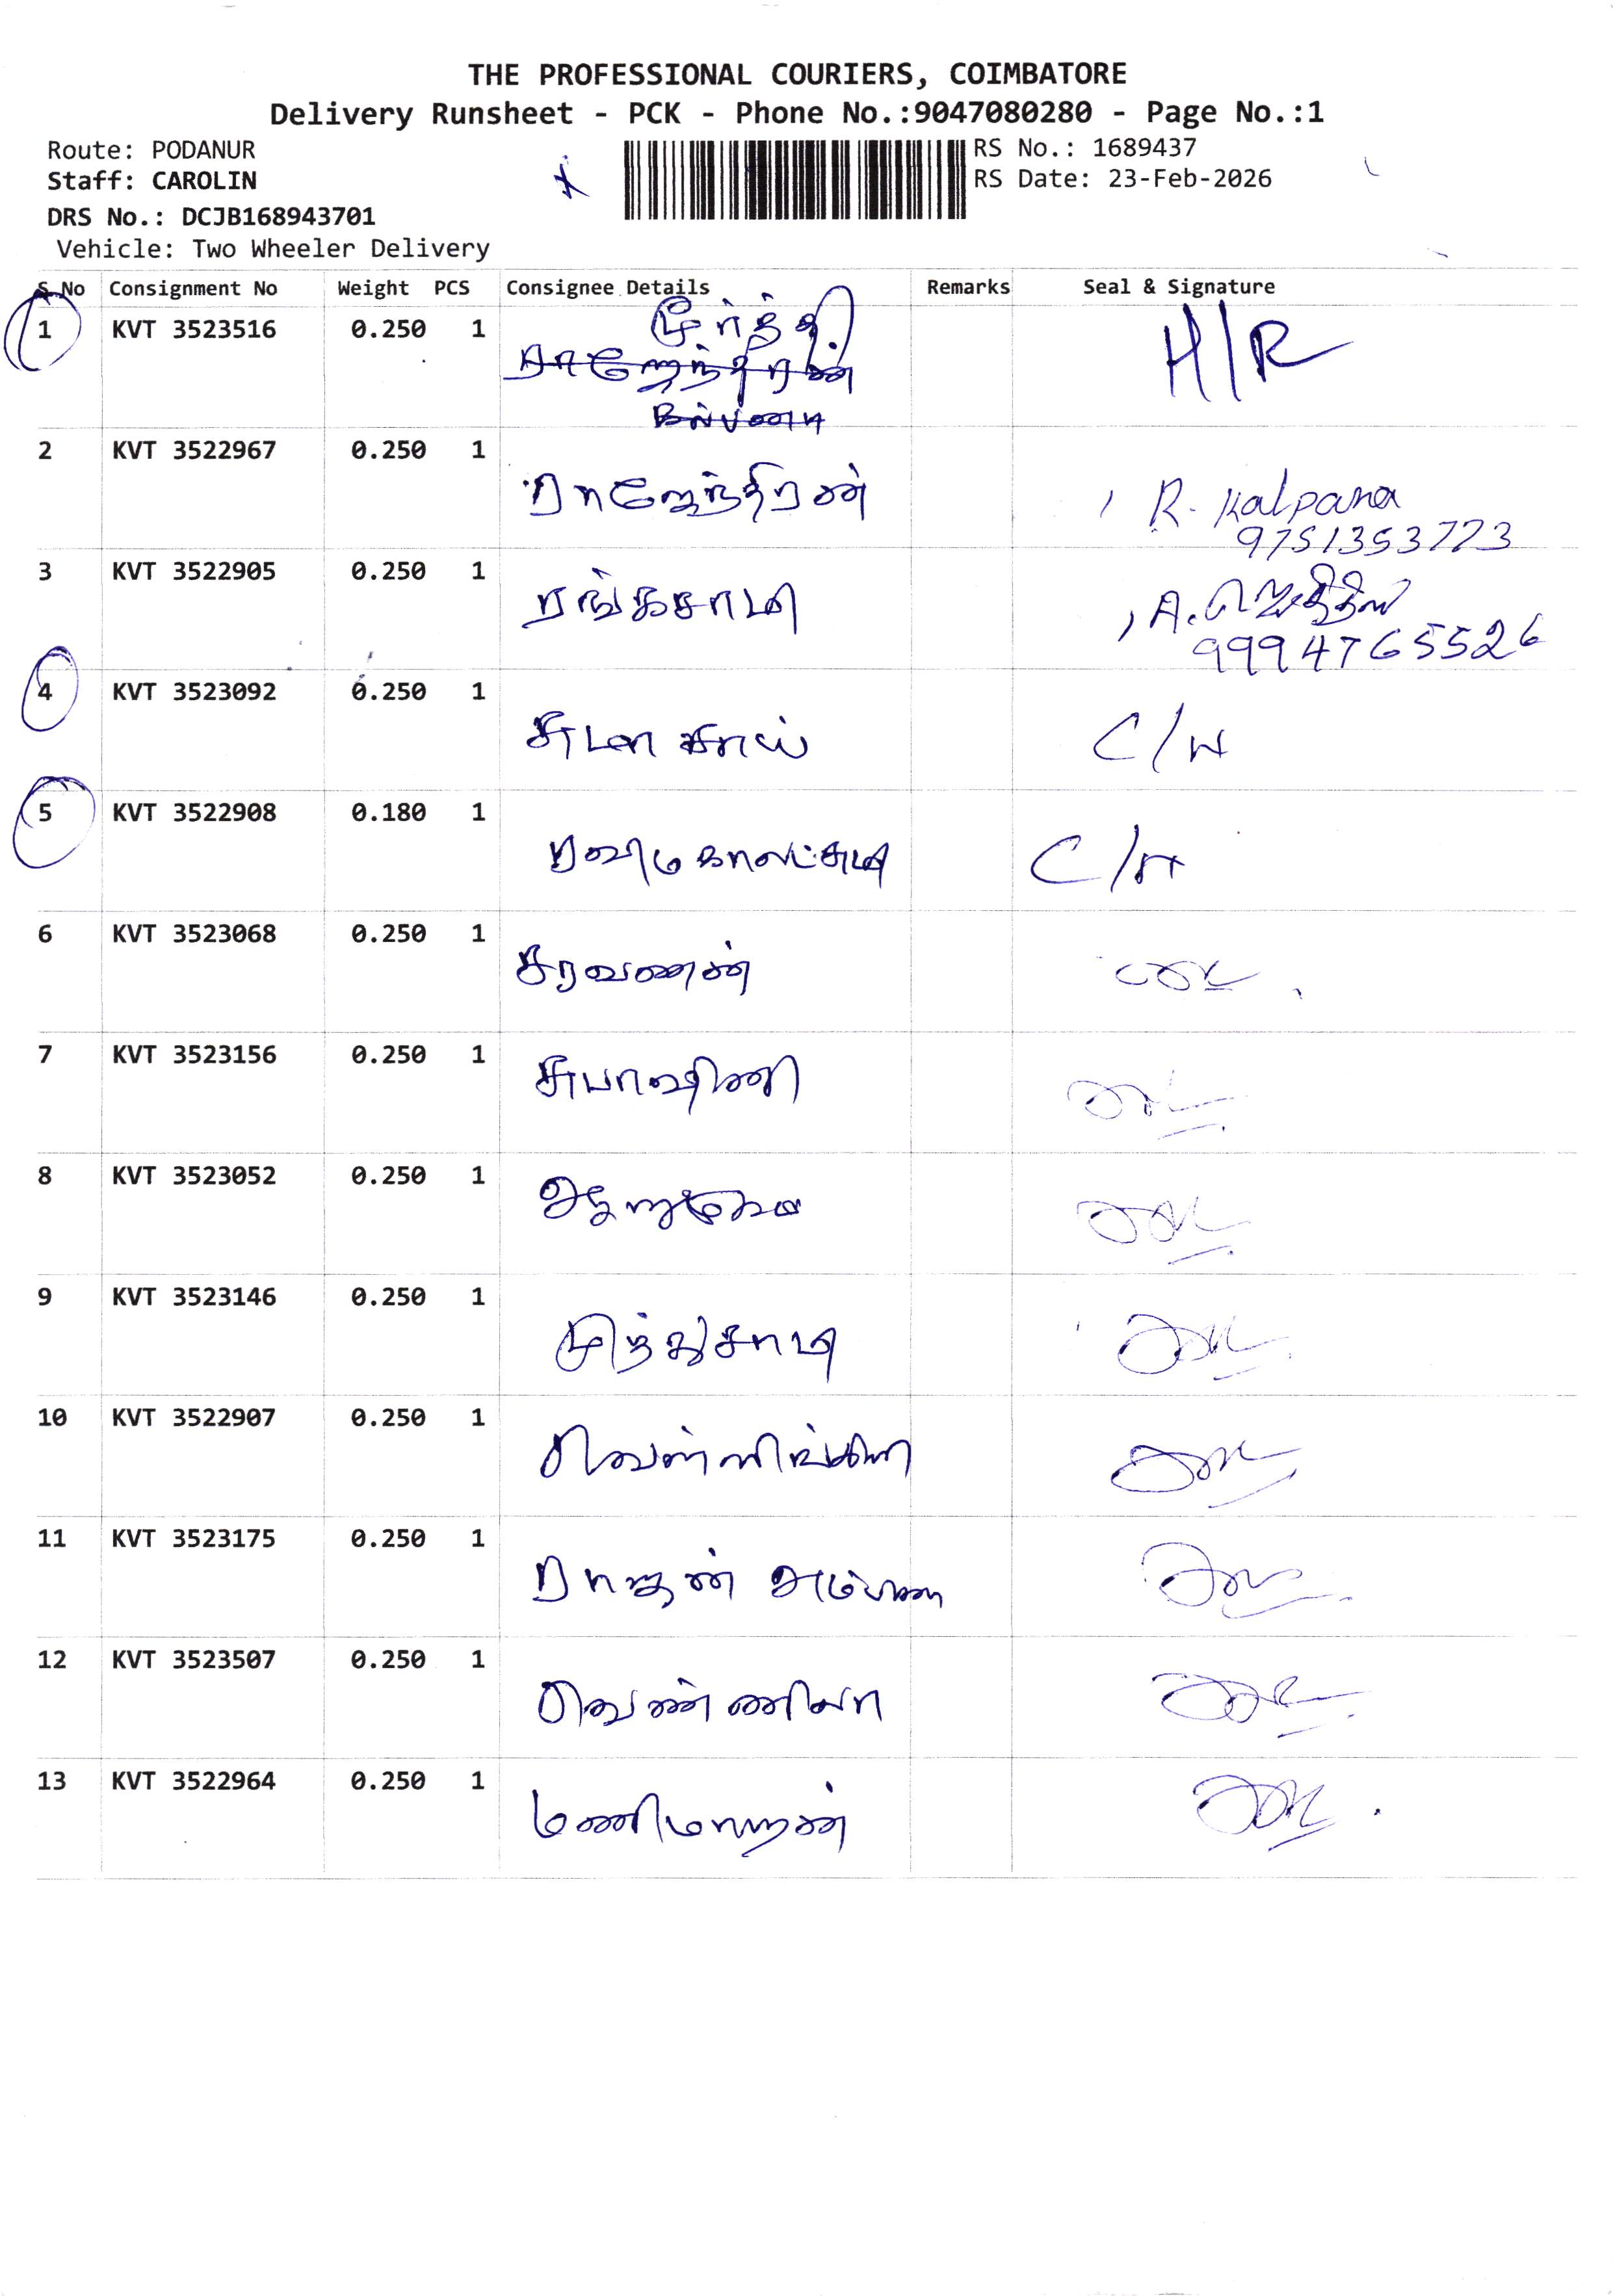 THE PROFESSIONAL COURIERS, COIMBATORE
Delivery Runsheet - PCK - Phone No.:9047080280 - Page No.:1
Route: PODANUR
RS No.: 1689437
Staff: CAROLIN
RS Date: 23-Feb-2026
DRS No.: DCJB168943701
Vehicle: Two Wheeler Delivery
S.No Consignment No Weight PCS Consignee Details Remarks Seal & Signature
மூர்த்தி
1 KVT 3523516 0.250 1 H/R
ராஜேந்திரன்
2 KVT 3522967 0.250 1
ராஜேந்திரன் R. Kalpana
9751353773
3 KVT 3522905 0.250 1
ரங்கசாமி A.
9994765526
4 KVT 3523092 0.250 1
C/N
5 KVT 3522908 0.180 1
C/N
6 KVT 3523068 0.250 1
சரவணன்
7 KVT 3523156 0.250 1
சுபாஷினி
8 KVT 3523052 0.250 1
9 KVT 3523146 0.250 1
முத்துசாமி
10 KVT 3522907 0.250 1
11 KVT 3523175 0.250 1
ராஜன்
12 KVT 3523507 0.250 1
வெண்ணிலா
13 KVT 3522964 0.250 1
மணிமாறன்